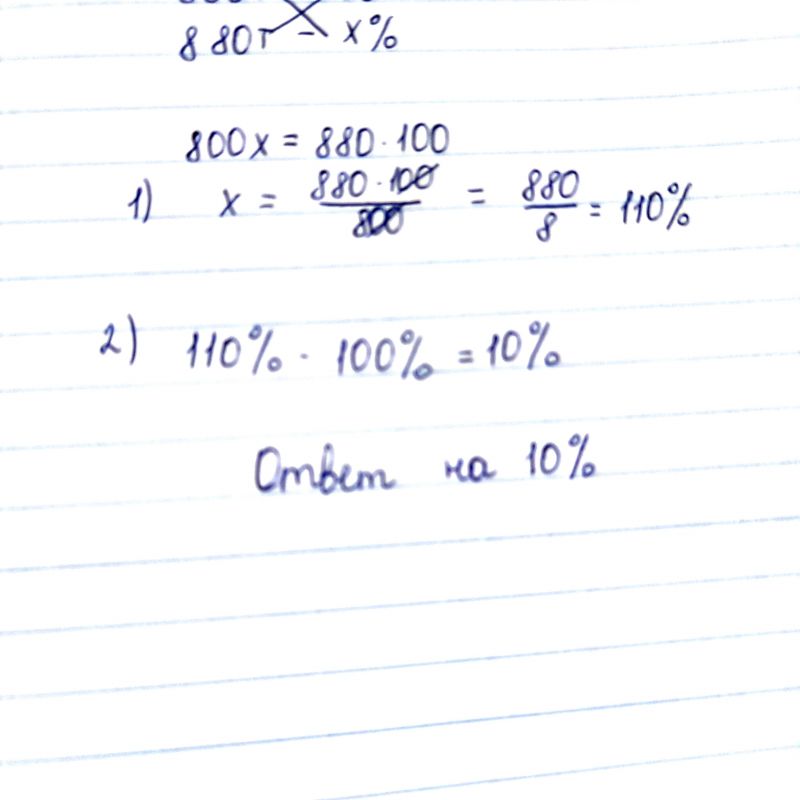 880г - x%
800x = 880 · 100
1) x = 880 · 100 / 800 = 880 / 8 = 110%
2) 110% · 100% = 10%
Ответ на 10%